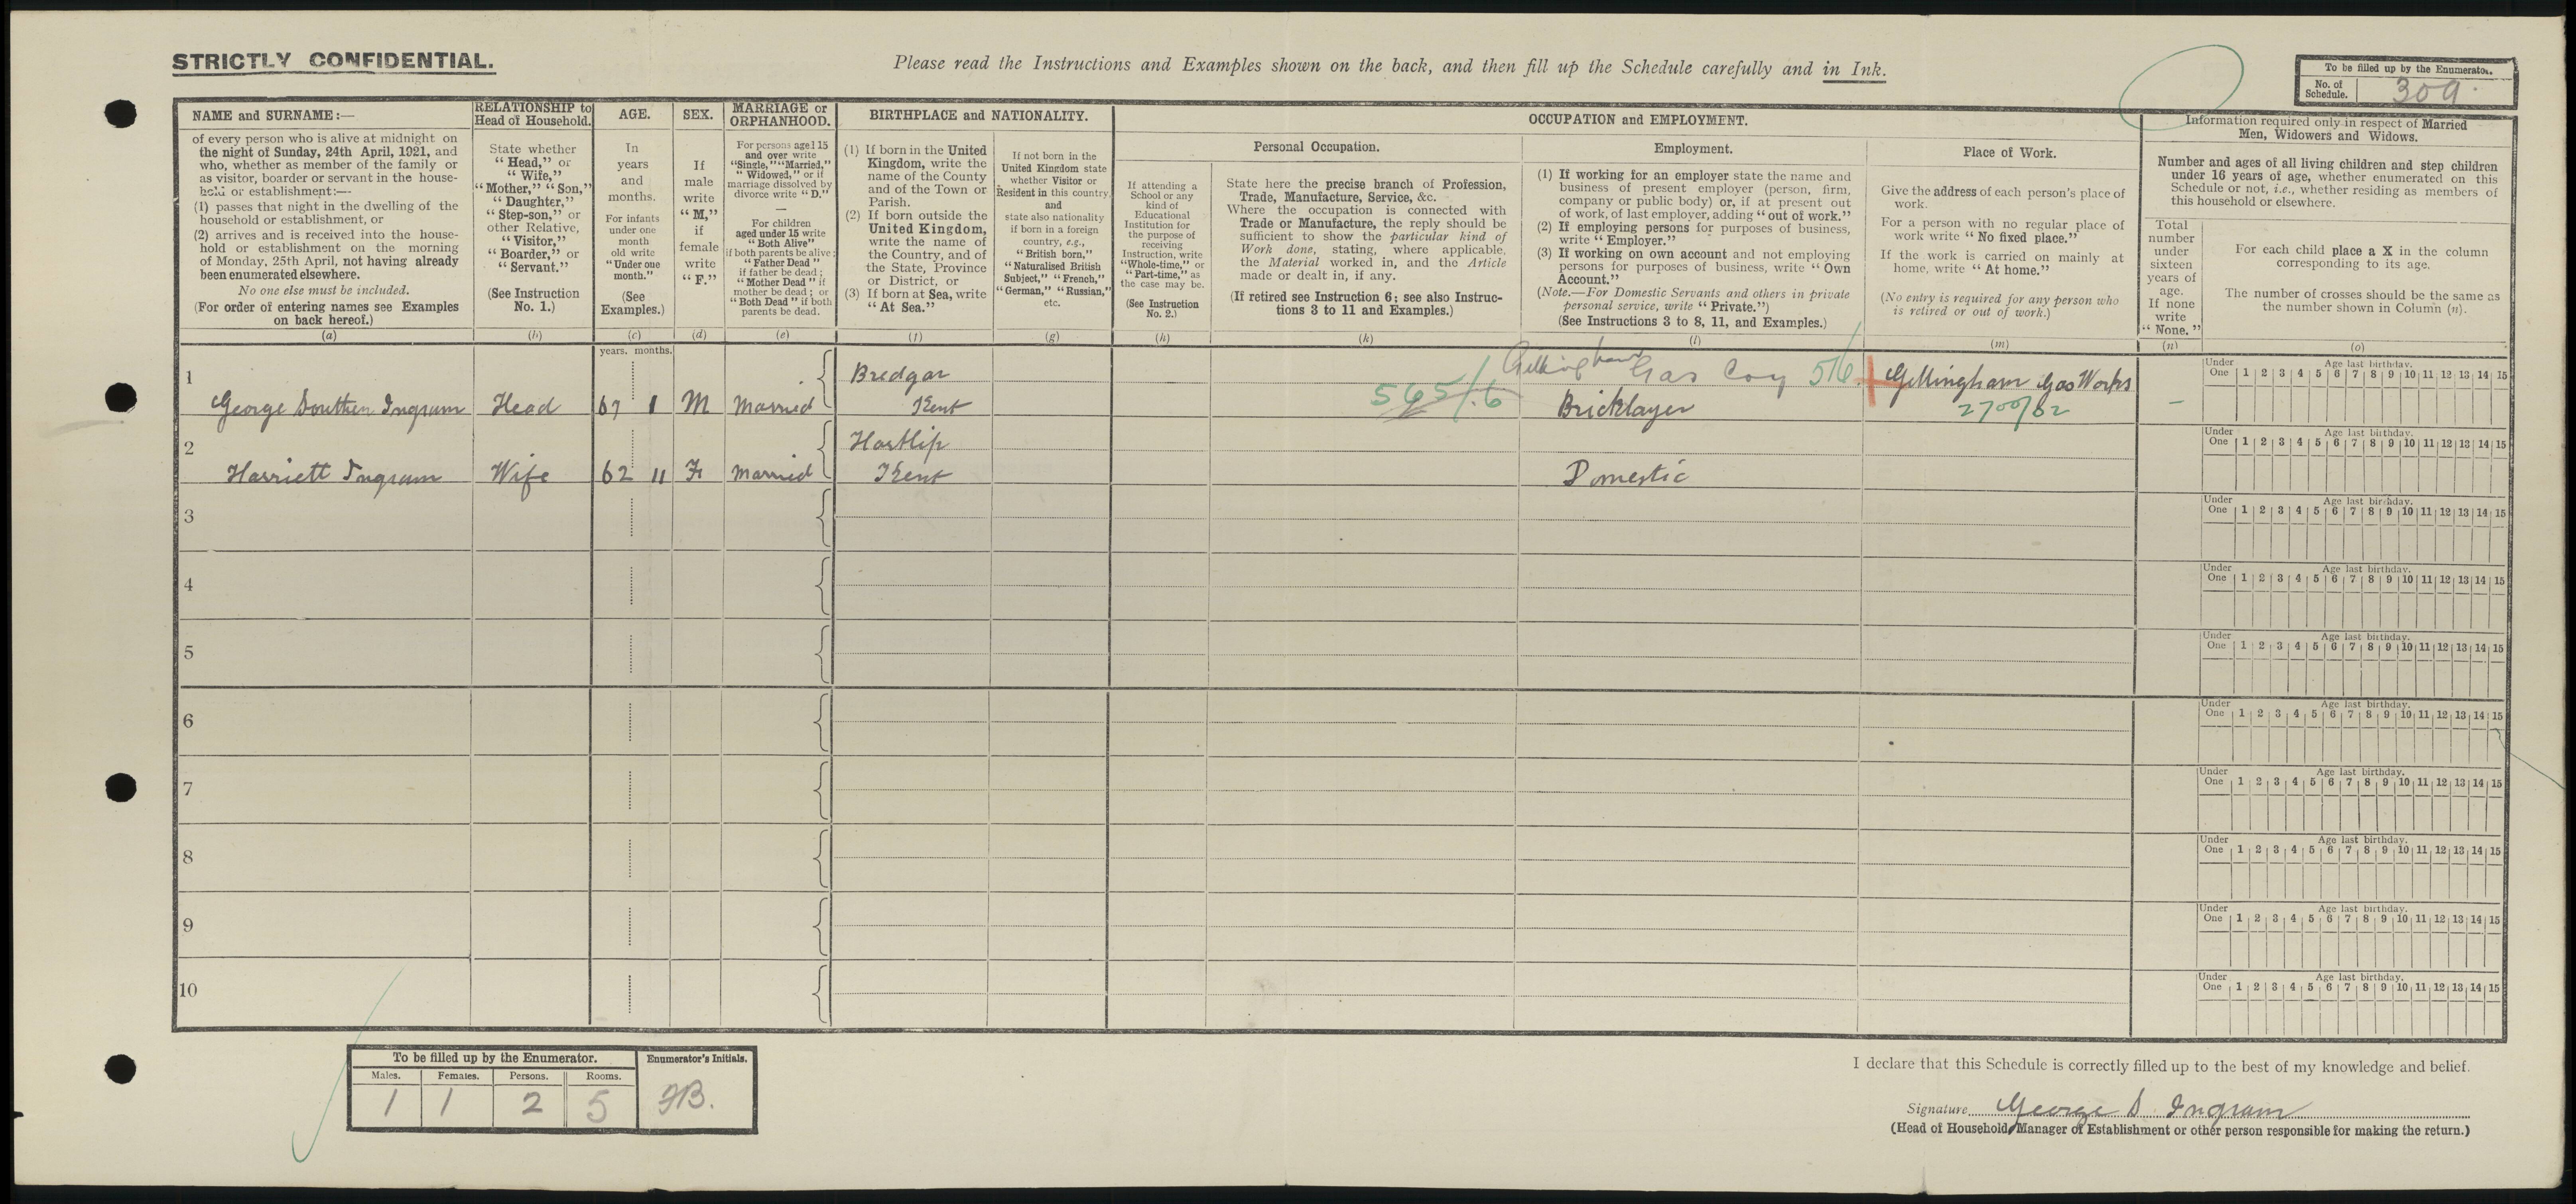 STRICTLY CONFIDENTIAL.
Please read the Instructions and Examples shown on the back, and then fill up the Schedule carefully and in Ink.
To be filled up by the Enumerator.
No. of Schedule. 309.
NAME and SURNAME:—
of every person who is alive at midnight on
the night of Sunday, 24th April, 1921, and
who, whether as member of the family or
as visitor, boarder or servant in the house-
hold or establishment:—
(1) passes that night in the dwelling of the
household or establishment, or
(2) arrives and is received into the house-
hold or establishment on the morning
of Monday, 25th April, not having already
been enumerated elsewhere.
No one else must be included.
(For order of entering names see Examples
on back hereof.)
(a)
RELATIONSHIP to
Head of Household.
State whether
"Head," or
"Wife,"
"Mother," "Son,"
"Daughter,"
"Step-son," or
other Relative,
"Visitor,"
"Boarder," or
"Servant."
(See Instruction
No. 1.)
(b)
AGE.
In
years
and
months.
For infants
under one
month
old write
"Under one
month."
(See
Examples.)
(c)
SEX.
If
male
write
"M,"
if
female
write
"F."
(d)
MARRIAGE or
ORPHANHOOD.
For persons aged 15
and over write
"Single," "Married,"
"Widowed," or if
marriage dissolved by
divorce write "D."
—
For children
aged under 15 write
"Both Alive"
if both parents be alive;
"Father Dead"
if father be dead;
"Mother Dead" if
mother be dead; or
"Both Dead" if both
parents be dead.
(e)
BIRTHPLACE and NATIONALITY.
(1) If born in the United
Kingdom, write the
name of the County
and of the Town or
Parish.
(2) If born outside the
United Kingdom,
write the name of
the Country, and of
the State, Province
or District, or
(3) If born at Sea, write
"At Sea."
(f)
If not born in the
United Kingdom state
whether Visitor or
Resident in this country,
and
state also nationality
if born in a foreign
country, e.g.,
"British born,"
"Naturalised British
Subject," "French,"
"German," "Russian,"
etc.
(g)
OCCUPATION and EMPLOYMENT.
If attending a
School or any
kind of
Educational
Institution for
the purpose of
receiving
Instruction, write
"Whole-time," or
"Part-time," as
the case may be.
(See Instruction
No. 2.)
(h)
Personal Occupation.
State here the precise branch of Profession,
Trade, Manufacture, Service, &c.
Where the occupation is connected with
Trade or Manufacture, the reply should be
sufficient to show the particular kind of
Work done, stating, where applicable,
the Material worked in, and the Article
made or dealt in, if any.
(If retired see Instruction 6; see also Instruc-
tions 3 to 11 and Examples.)
(k)
Employment.
(1) If working for an employer state the name and
business of present employer (person, firm,
company or public body) or, if at present out
of work, of last employer, adding "out of work."
(2) If employing persons for purposes of business,
write "Employer."
(3) If working on own account and not employing
persons for purposes of business, write "Own
Account."
(Note.—For Domestic Servants and others in private
personal service, write "Private.")
(See Instructions 3 to 8, 11, and Examples.)
(l)
Place of Work.
Give the address of each person's place of
work.
For a person with no regular place of
work write "No fixed place."
If the work is carried on mainly at
home, write "At home."
(No entry is required for any person who
is retired or out of work.)
(m)
Information required only in respect of Married
Men, Widowers and Widows.
Number and ages of all living children and step children
under 16 years of age, whether enumerated on this
Schedule or not, i.e., whether residing as members of
this household or elsewhere.
Total
number
under
sixteen
years of
age.
If none
write
"None."
(n)
For each child place a X in the column
corresponding to its age.
The number of crosses should be the same as
the number shown in Column (n).
(o)
years. months.
1
George Southen Ingram Head 67 1 M Married Bredgar Kent 565/.6 Gillingham Gas Coy 516 Bricklayer Gillingham Gas Works 2700/82 –
Under One Age last birthday. 1 2 3 4 5 6 7 8 9 10 11 12 13 14 15
2
Harriett Ingram Wife 62 11 F Married Hartlip Kent Domestic
Under One Age last birthday. 1 2 3 4 5 6 7 8 9 10 11 12 13 14 15
3
Under One Age last birthday. 1 2 3 4 5 6 7 8 9 10 11 12 13 14 15
4
Under One Age last birthday. 1 2 3 4 5 6 7 8 9 10 11 12 13 14 15
5
Under One Age last birthday. 1 2 3 4 5 6 7 8 9 10 11 12 13 14 15
6
Under One Age last birthday. 1 2 3 4 5 6 7 8 9 10 11 12 13 14 15
7
Under One Age last birthday. 1 2 3 4 5 6 7 8 9 10 11 12 13 14 15
8
Under One Age last birthday. 1 2 3 4 5 6 7 8 9 10 11 12 13 14 15
9
Under One Age last birthday. 1 2 3 4 5 6 7 8 9 10 11 12 13 14 15
10
Under One Age last birthday. 1 2 3 4 5 6 7 8 9 10 11 12 13 14 15
To be filled up by the Enumerator. Enumerator's Initials.
Males. Females. Persons. Rooms.
1 1 2 5 FB.
I declare that this Schedule is correctly filled up to the best of my knowledge and belief.
Signature George S Ingram
(Head of Household, Manager of Establishment or other person responsible for making the return.)